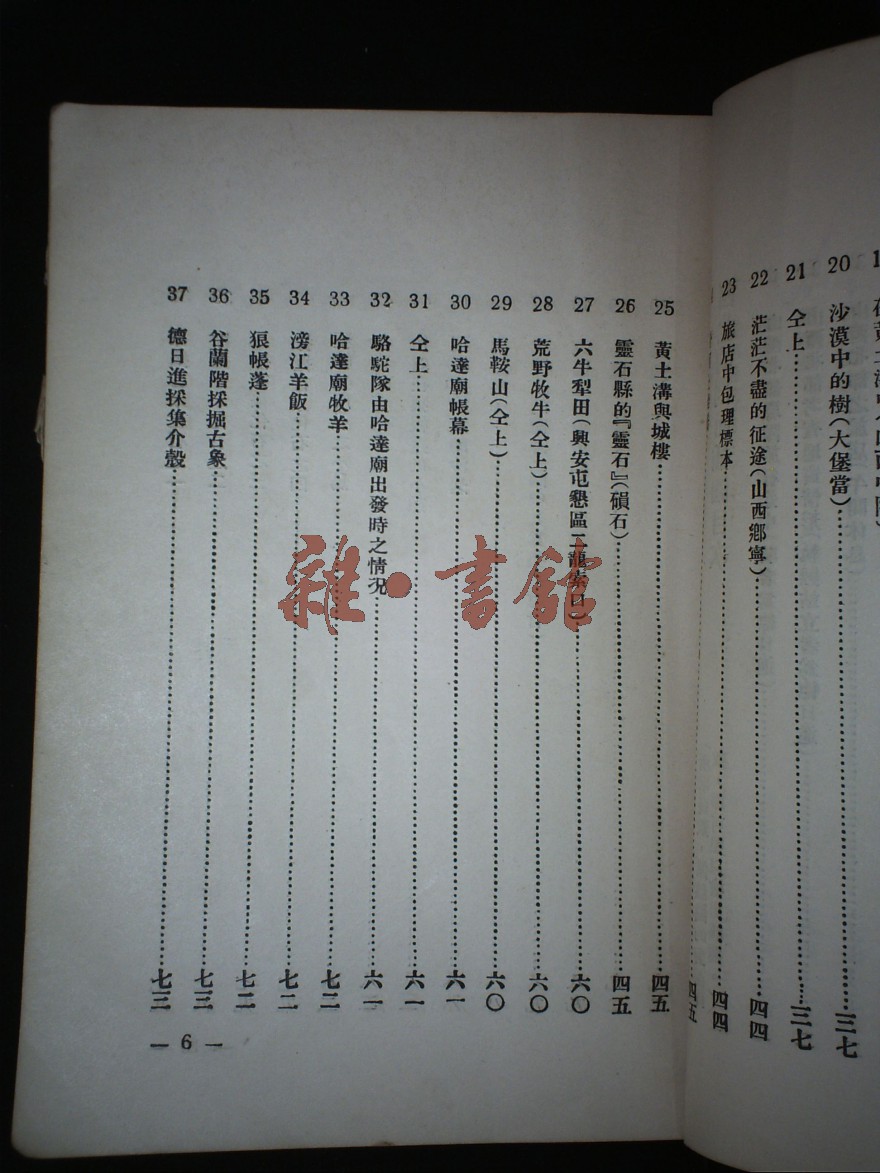 20 沙漠中的樹(大堡當)……三七
21 仝上……三七
22 茫茫不盡的征途(山西鄉寧)……四四
23 旅店中包理標本……四四
四五
25 黃土溝與城樓……四五
26 靈石縣的『靈石』(磒石)……四五
27 六牛犁田(興安屯懇區二龍索口)……六〇
28 荒野牧牛(仝上)……六〇
29 馬鞍山(仝上)……六〇
30 哈達廟帳幕……六一
31 仝上……六一
32 駱駝隊由哈達廟出發時之情况……六一
33 哈達廟牧羊……七二
34 滂江羊飯……七二
35 狼帳蓬……七二
36 谷蘭階採掘古象……七三
37 德日進採集介殼……七三
— 6 —
雜·書館